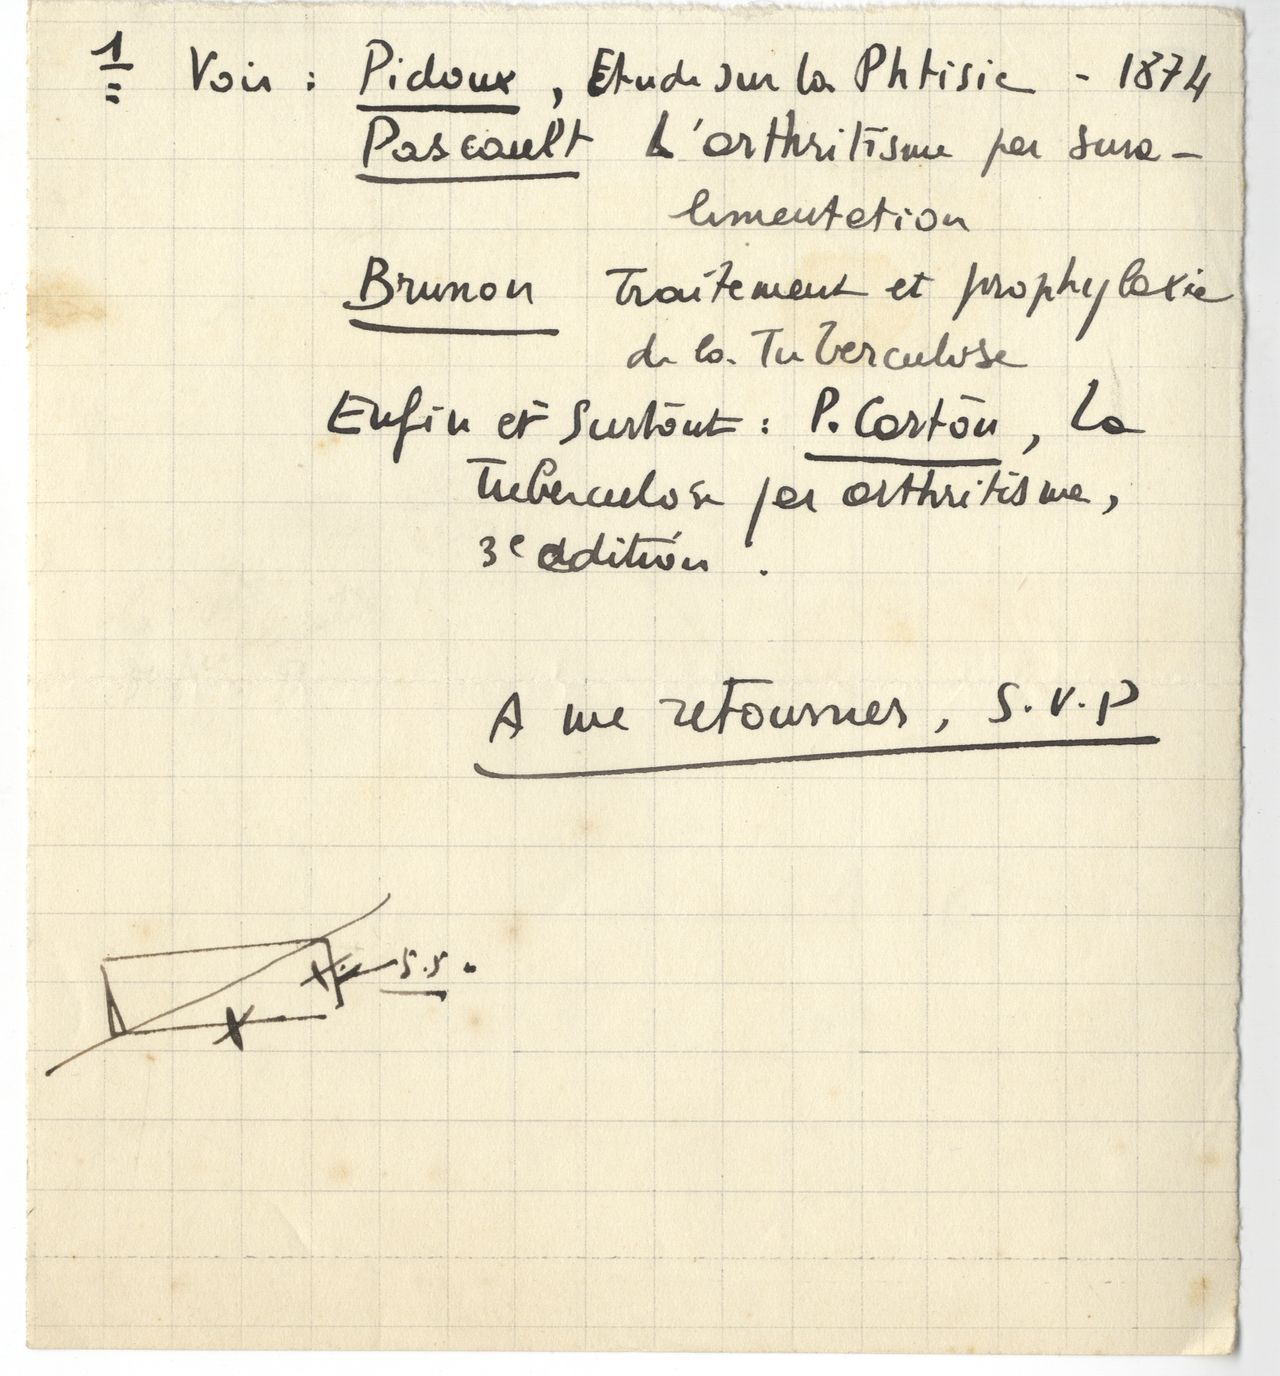 1 Voir : Pidoux, Etude sur la Phtisie - 1874
Pascault L'arthritisme par sura-
limentation
Brunon Traitement et prophylaxie
de la Tuberculose
Enfin et surtout : P. Carton, La
Tuberculose par arthritisme,
3e édition.
A me retourner, S.V.P